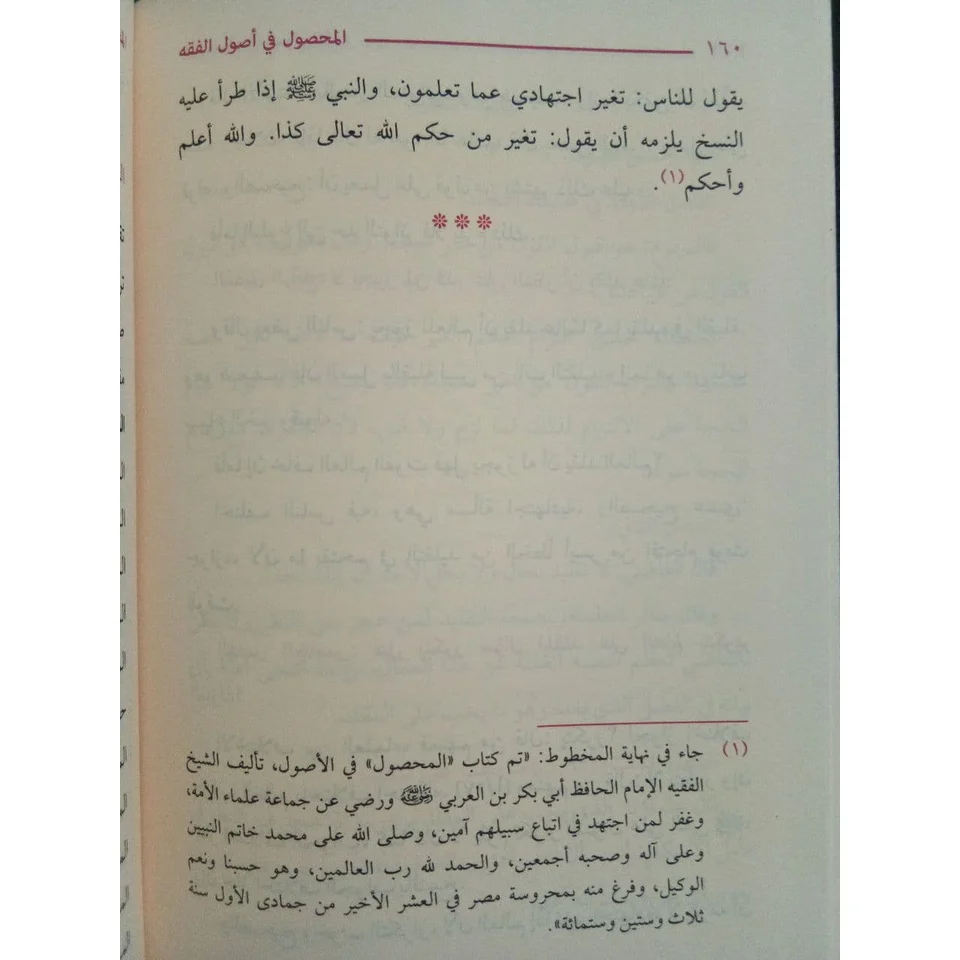 ١٦٠ المحصول في أصول الفقه
يقول للناس: تغير اجتهادي عما تعلمون، والنبي ﷺ إذا طرأ عليه
النسخ يلزمه أن يقول: تغير من حكم الله تعالى كذا. والله أعلم
وأحكم(١).
(١) جاء في نهاية المخطوط: «تم كتاب «المحصول» في الأصول، تأليف الشيخ
الفقيه الإمام الحافظ أبي بكر بن العربي ورضي عن جماعة علماء الأمة،
وغفر لمن اجتهد في اتباع سبيلهم آمين، وصلى الله على محمد خاتم النبيين
وعلى آله وصحبه أجمعين، والحمد لله رب العالمين، وهو حسبنا ونعم
الوكيل، وفرغ منه بمحروسة مصر في العشر الأخير من جمادى الأول سنة
ثلاث وستين وستمائة».